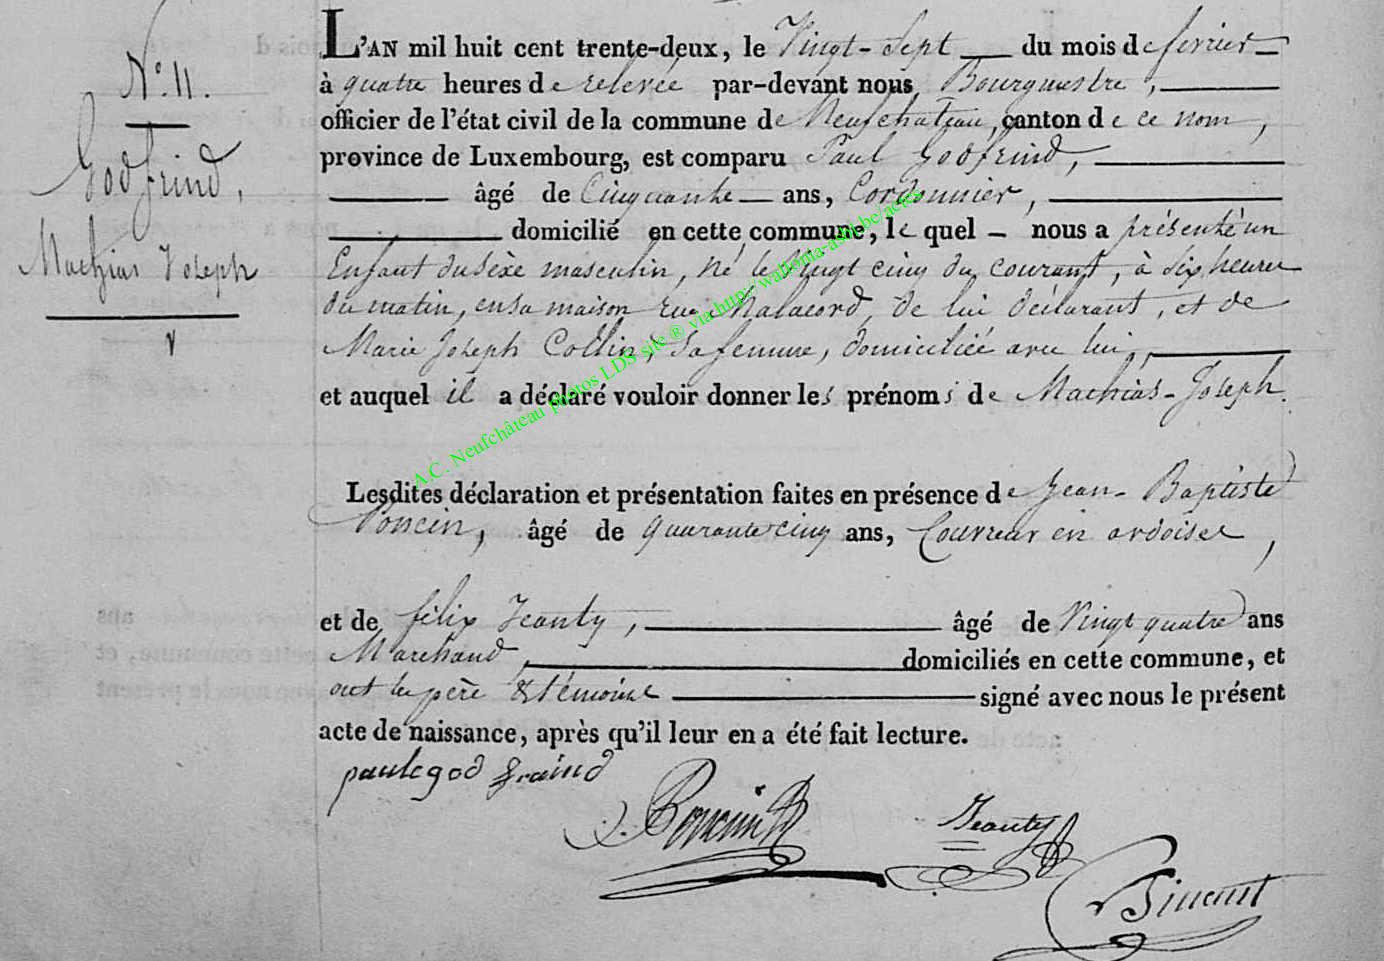 N.º 11.
Godfrind,
Machias Joseph
L'AN mil huit cent trente-deux, le Vingt-Sept du mois de fevrier
à quatre heures de relevée par-devant nous Bourgmestre,
officier de l'état civil de la commune de Neufchateau, canton de ce nom,
province de Luxembourg, est comparu Paul Godfrind,
âgé de Cinquante ans, Cordonnier,
domicilié en cette commune, le quel nous a présenté un
Enfant du Sexe masculin, né le vingt cinq du courant, à six heures
du matin, en sa maison rue Malacord, de lui déclarant, et de
Marie Joseph Collin, Sa femme, domiciliée avec lui,
et auquel il a déclaré vouloir donner les prénoms de Machias-Joseph.
A.C. Neufchâteau photos LDS site ® via http://wallonia-asbl.be/actes
Lesdites déclaration et présentation faites en présence de Jean-Baptiste
Poncin, âgé de quarante cinq ans, Couvreur en ardoises,
et de félix Jeanty, âgé de Vingt quatre ans
Marchand, domiciliés en cette commune, et
ont les père & témoins signé avec nous le présent
acte de naissance, après qu'il leur en a été fait lecture.
paul god fraind
J. B. Poncin
Jeanty